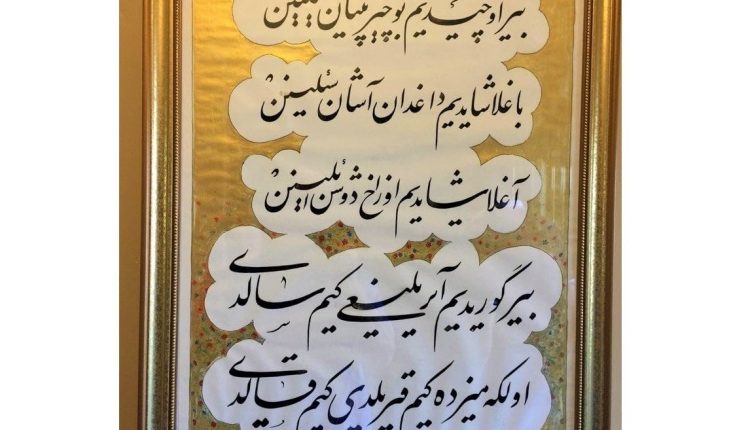 بیر اوچیدیم بو چیرپینان یئلینن
باغلاشایدیم داغدان آشان سئلینن
آغلاشایدیم اوزاخ دوشن ائلینن
بیر گوریدیم آیریلیغی کیم سالدی
اولکه میزده کیم قیریلدی کیم قالدی